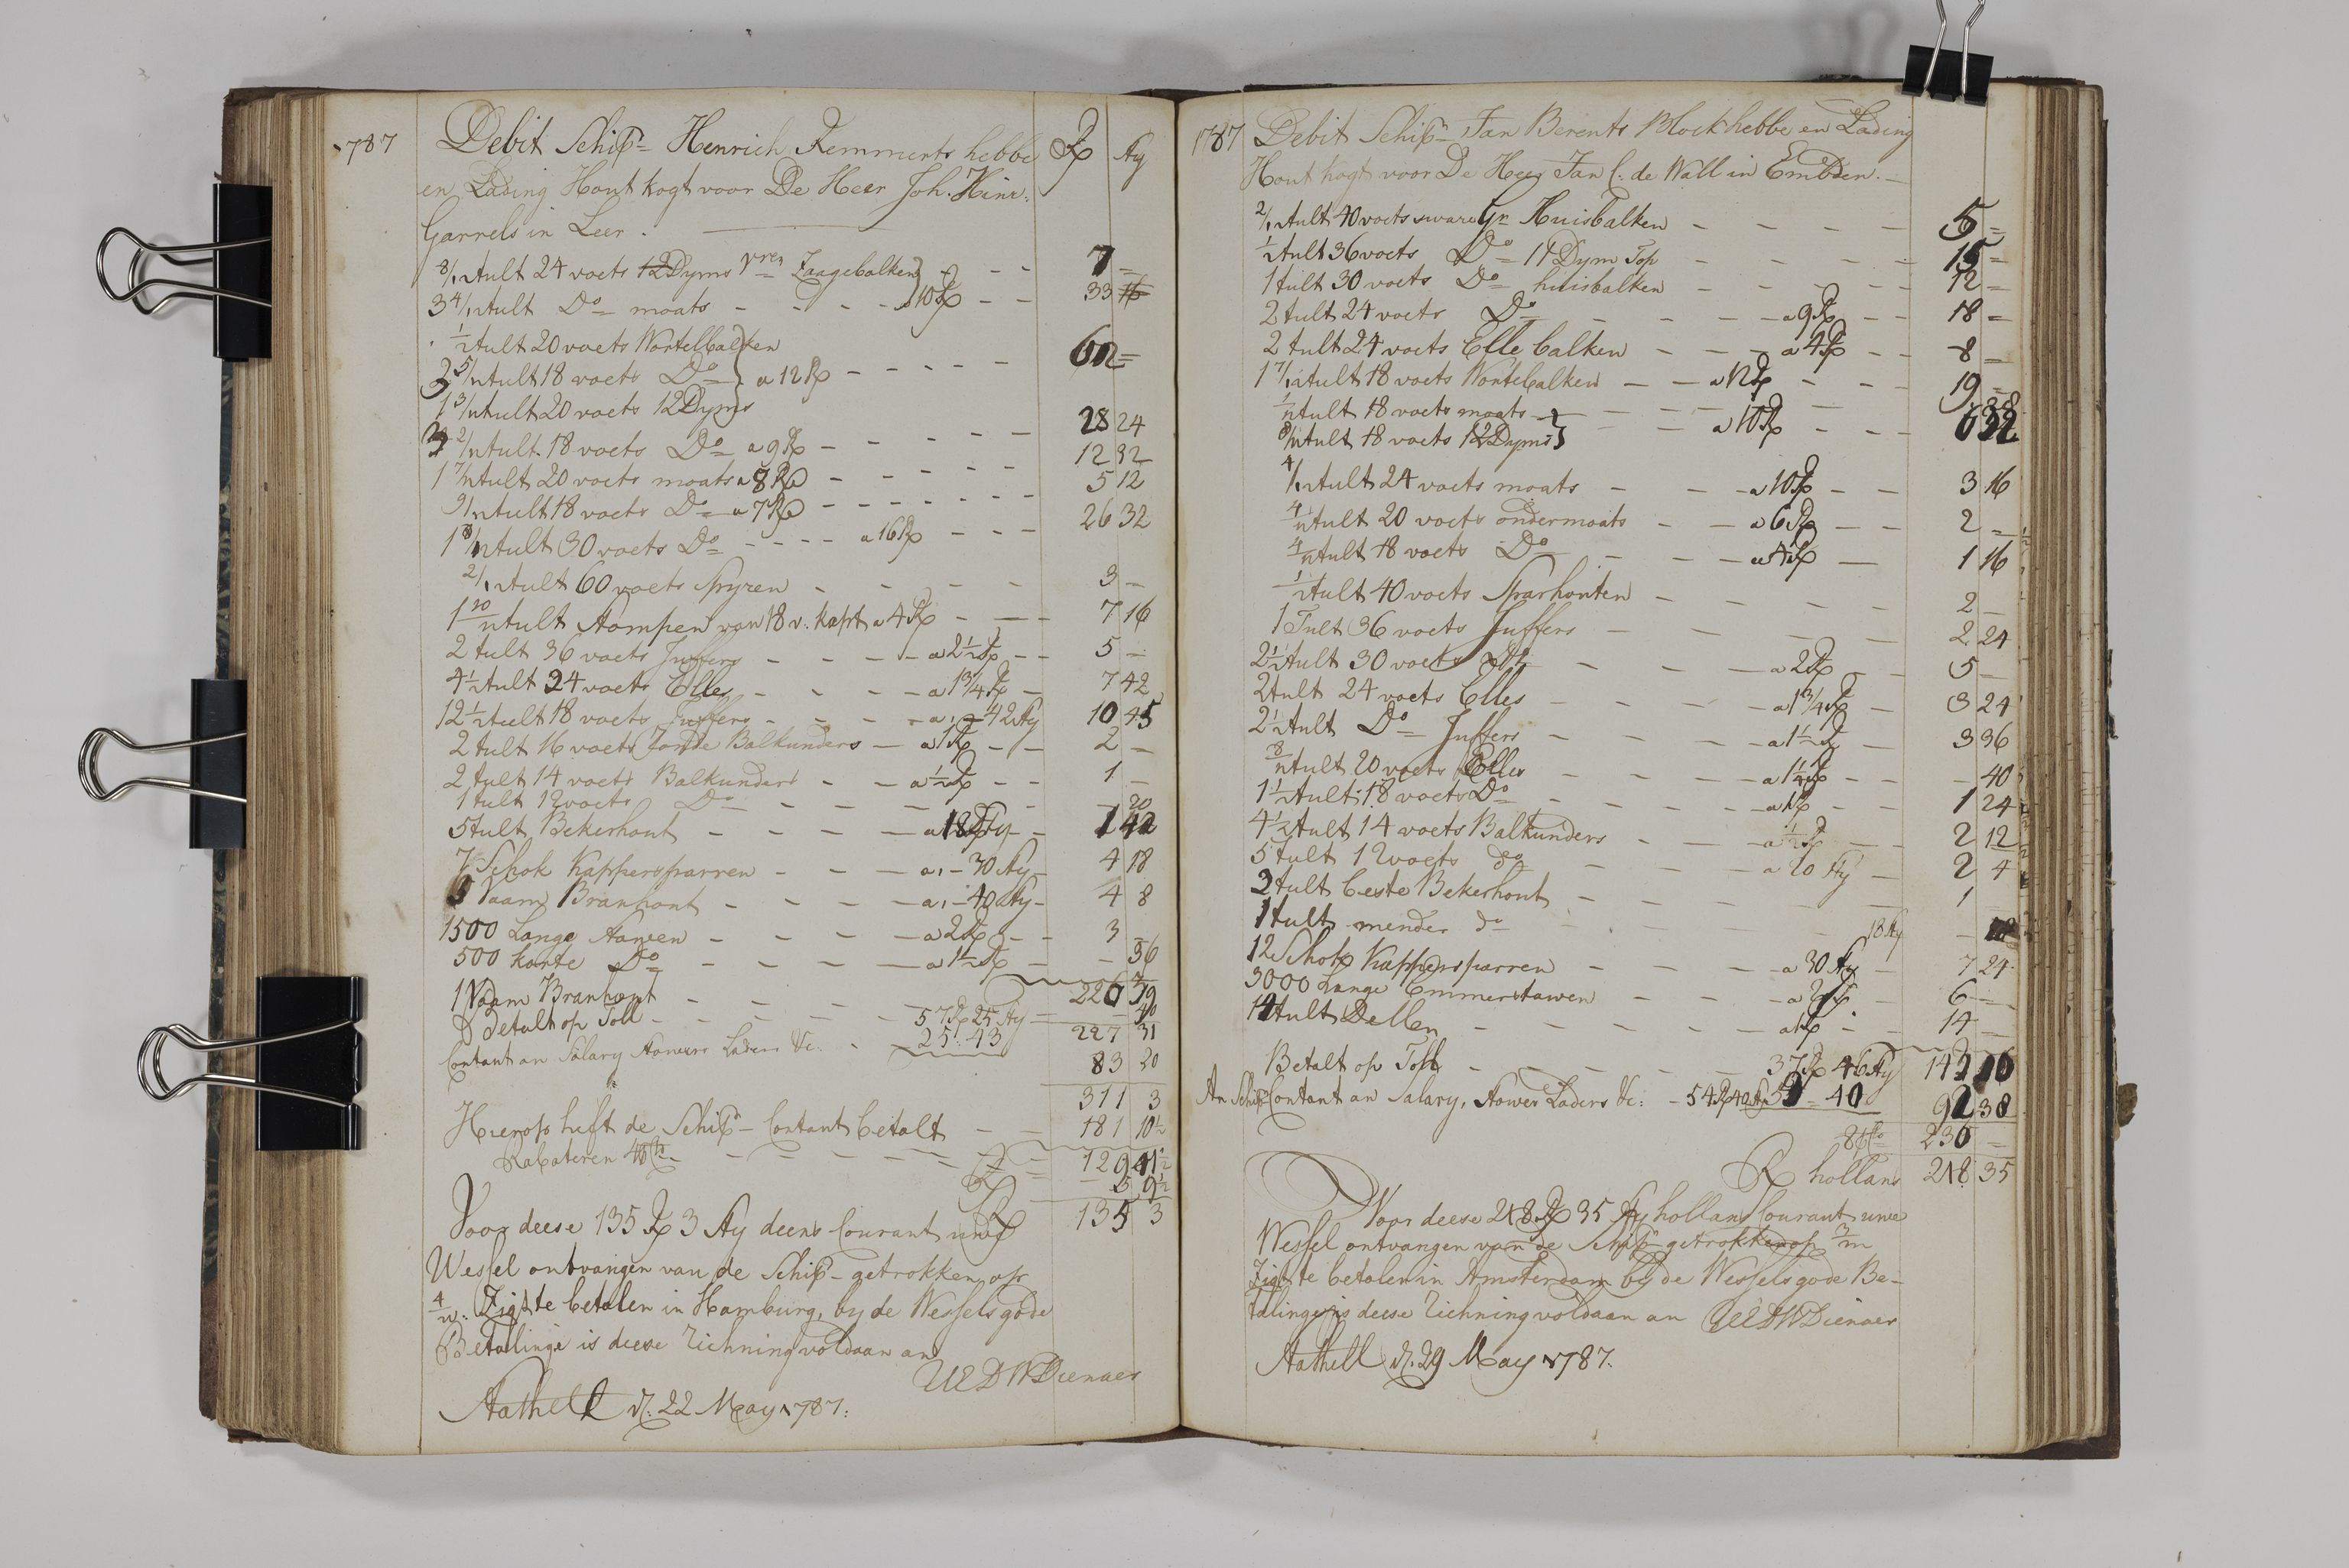 1787 Debit Schipr Henrich Remmerts hebbe Rx Sty
en Lading Hout kogt voor De Heer Joh. Hinr:
Garrels in Leer.
8/12 tult 24 voets 12 Dyms Zaagebalken 7 =
3 4/12 tult Do moats a 10 Rx 33 16
1/2 tult 20 voets Wortelbalken
5/12 tult 18 voets Do a 12 Rx
1 3/12 tult 20 voets 12 Dyms
2/12 tult 18 voets Do a 9 Rx 28 24
1 7/12 tult 20 voets moats a 8 Rx 12 32
9/12 tult 18 voets Do a 7 Rx 5 12
1 8/12 tult 30 voets Do a 16 Rx 26 32
2/12 tult 60 voets Spyren 3 –
1 10/12 tult Stompen van 18 v. kapt a 4 Rx 7 16
2 tult 36 voets Juffers a 2 1/2 Rx 5 –
4 1/2 tult 24 voets Elles a 1 3/4 Rx 7 42
12 1/2 tult 18 voets Juffers a , – 42 Sty 10 45
2 tult 16 voets Balkunders a 1 Rx 2 –
2 tult 14 voets Balkunders a 1/2 Rx 1 –
1 tult 12 voets Do – 20
5 tult Bekerhout a 18 Sty 1 42
7 Schok kappersparren a , – 30 Sty 4 18
5 Vaam Branhout a , – 40 Sty 4 8
1500 Lange Stawen a 2 Rx 3 –
500 korte Do a 1 1/2 Rx – 36
226 39
1 Vaam Branhout 40
Betalt op Toll 57 Rx 25 Sty 227 31
Contant an Salary Stower Laders &c. 25. 43 83 20
311 3
Hierop heft de Schipr Contant betalt 181 10 1/2
129 41 1/2
Rabateren 4 pCto 5 9 1/2
Rx 135 3
Voor deese 135 Rx 3 Sty deens Courant
Wessel ontvangen van de Schipr getrokken op
4/w: Zigt te betalen in Hamburg, by de Wessels gode
Betalinge is deese Richning voldaan an
UEDW Dienaer
Stathell d. 22 May 1787.
1787 Debit Schipr Jan Berents Blok hebbe en Lading
Hout kogt voor De Heer Jan C. de Wall in Embden.
2/12 tult 40 voets sware Gr Huisbalken 5 =
1/2 tult 36 voets Do 11 Dym Top 15 =
1 tult 30 voets Do huisbalken 12 =
2 tult 24 voets Do a 9 Rx 18 =
2 tult 24 voets Elle balken a 4 Rx 8 –
1 7/12 tult 18 voets Wortelbalken a 12 Rx 19 =
1/12 tult 18 voets moats
8/12 tult 18 voets 12 Dyms a 10 Rx
4/12 tult 24 voets moats a 10 Rx 3 16
4/12 tult 20 voets ondermoats a 6 Rx 2 –
4/12 tult 18 voets Do a 4 Rx 1 16
1/2 tult 40 voets Sparhouten 2 –
1 Tult 36 voets Juffers 2 24
2 1/2 tult 30 voets Do a 2 Rx 5 –
2 tult 24 voets Elles a 1 3/4 Rx 3 24
2 1/2 tult Do Juffers a 1 1/2 Rx 3 36
8/12 tult 20 voets Elles a 1 1/4 Rx – 40
1 1/2 tult 18 voets Do a 1 Rx 1 24
4 1/2 tult 14 voets Balkunders a 1/2 Rx 2 12
5 tult 12 voets do a 20 Sty 2 4
2 tult beste Bekerhout 1
1 tult minder do 18 Sty – 18
12 Schok kappersparren a 30 Sty 7 24
3000 Lange Emmerstawen a 2 Rx 6 –
14 tult Dellen a 1 Rx 14 –
Betalt op Toll 37 Rx 46 Sty
An Schipr Contant an Salary, Stower Laders &c: 54 Rx 40 Sty
230 –
Rx hollans 218 35
Voor deese 218 Rx 35 Sty hollans Courant
Wessel ontvangen van de Schipr getrokken op 3/m
Zigt te betalen in Amsterdam by de Wessels gode Be-
talinge is deese Richning voldaan an UEDW Dienaer
Stathell d. 29 May 1787.